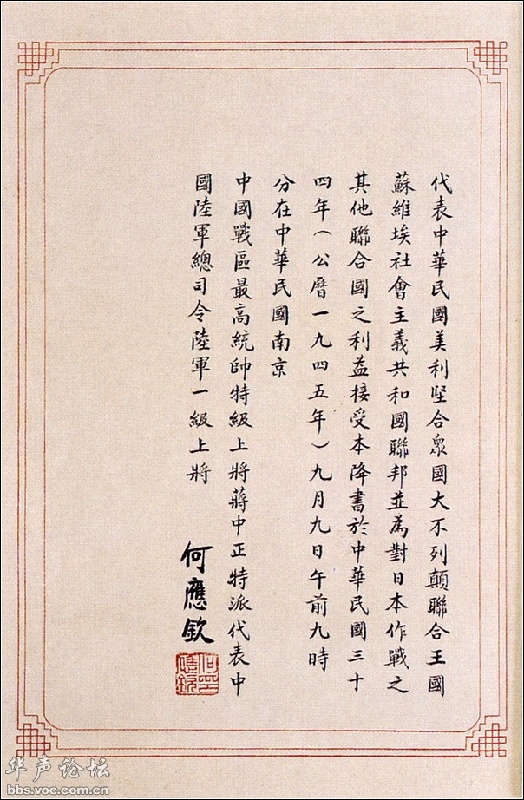 代表中華民國美利堅合衆國大不列顛聯合王國
蘇維埃社會主義共和國聯邦並為對日本作戰之
其他聯合國之利益接受本降書於中華民國三十
四年(公曆一九四五年)九月九日午前九時
分在中華民國南京
中國戰區最高統帥特級上將蔣中正特派代表中
國陸軍總司令陸軍一級上將
何應欽
何應欽印
华声论坛
bbs.voc.com.cn